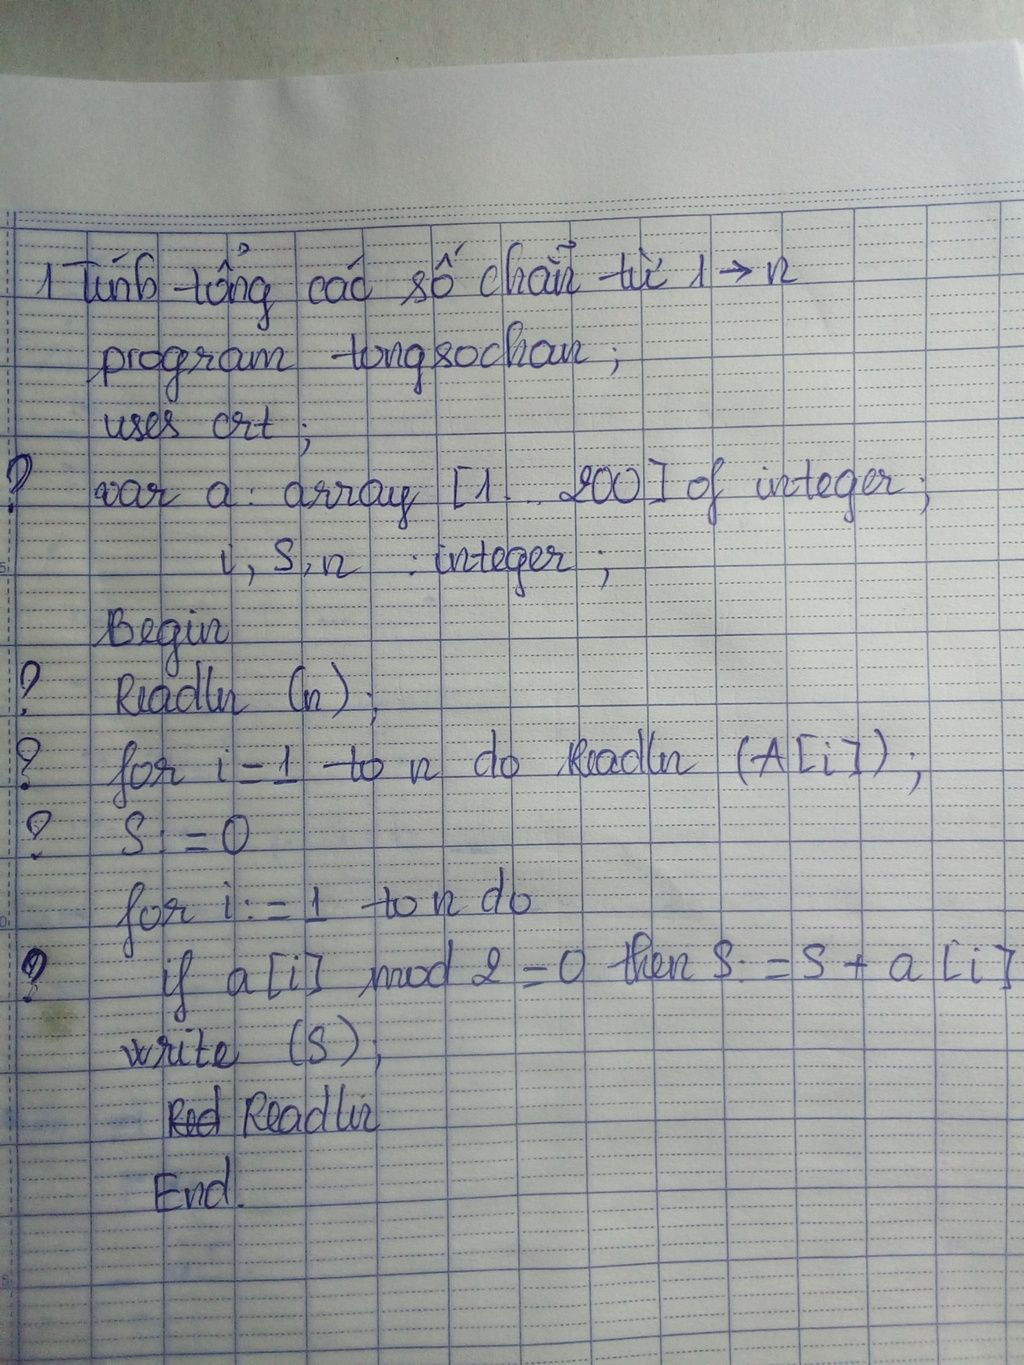 1 Tính tổng các số chẵn từ 1 → n
program tongsochan;
uses crt;
? var a: array [1..200] of integer;
i, S, n : integer;
Begin
? Readln (n);
? for i = 1 to n do Readln (A[i]);
? S := 0
for i := 1 to n do
? if a[i] mod 2 = 0 then S := S + a[i]
write (S);
Readln
End.